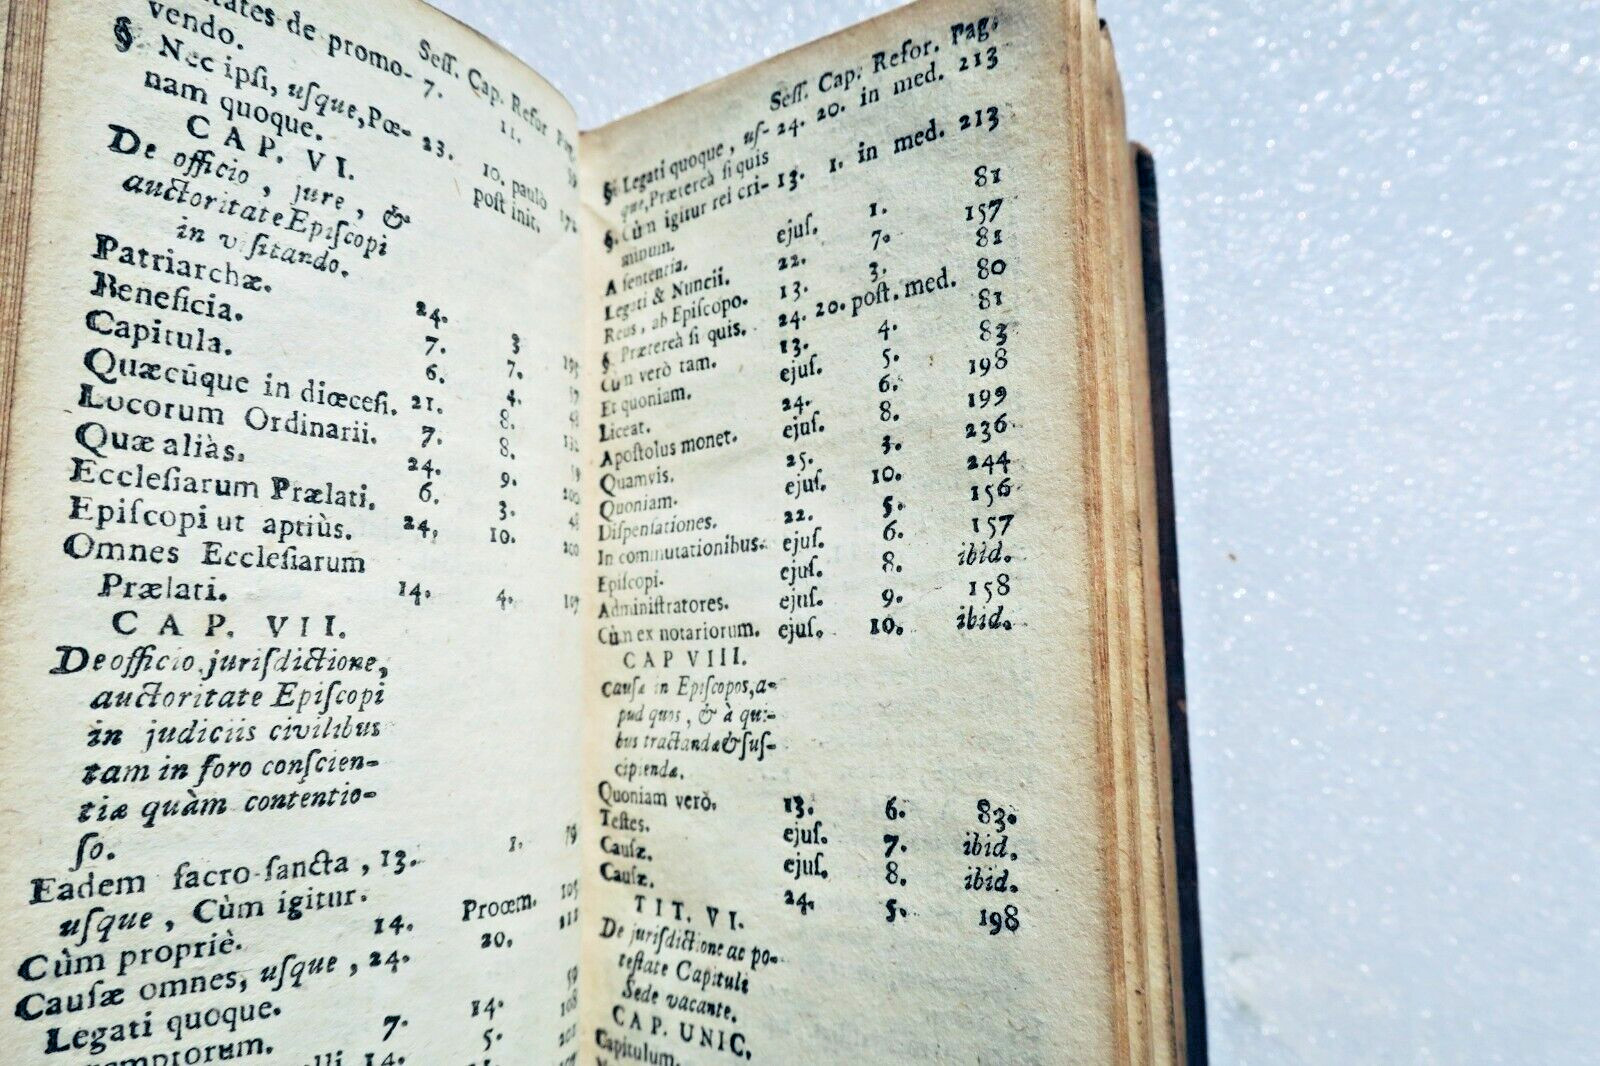 tates de promo- 7.
vendo.
Sess. Cap. Refor Pag.
11.
§ Nec ipsi, usque, Pœ- 23. 10. paulò 172
nam quoque. post init.
CAP. VI.
De officio, jure, &
auctoritate Episcopi
in visitando.
Patriarchæ. 24. 3 195
Beneficia. 7. 7. 57
Capitula. 6. 4. 48
Quæcūque in diœcesi. 21. 8. 132
Locorum Ordinarii. 7. 8. 59
Quæ aliàs. 24. 9. 200
Ecclesiarum Prælati. 6. 3. 48
Episcopi ut aptiùs. 24, 10. 200
Omnes Ecclesiarum
Prælati. 14. 4. 107
CAP. VII.
De officio jurisdictione,
auctoritate Episcopi
in judiciis civilibus
tam in foro conscien-
tiæ quàm contentio-
so.
Eadem sacro-sancta, 13. 1. 79
usque, Cùm igitur.
Cùm propriè. 14. Proœm. 105
Causæ omnes, usque, 24. 20. 212
Legati quoque.
7. 14. 59
14. 5. 108
Sess. Cap. Refor. Pag.
§ Legati quoque, us- 24. 20. in med. 213
que, Prætereà si quis
§. Cùm igitur rei cri- 13. 1. in med. 213
minum.
A sententia. ejus. 1. 81
Legati & Nuncii. 22. 7. 157
Reus, ab Episcopo. 13. 3. 81
§ Prætereà si quis. 24. 20. post. med. 80
Cùm verò tam. 13. 4. 81
Et quoniam. ejus. 5. 83
Liceat. 24. 6. 198
Apostolus monet. ejus. 8. 199
Quamvis. 25. 3. 236
Quoniam. ejus. 10. 244
Dispensationes. 22. 5. 156
In commutationibus. ejus. 6. 157
Episcopi. ejus. 8. ibid.
Administratores. ejus. 9. 158
Cùm ex notariorum. ejus. 10. ibid.
CAP VIII.
Causæ in Episcopos, a-
pud quos, & à qui-
bus tractandæ & sus-
cipiendæ.
Quoniam verò. 13. 6. 83.
Testes. ejus. 7. ibid.
Causæ. ejus. 8. ibid.
Causæ. 24. 5. 198
TIT. VI.
De jurisdictione ac po-
testate Capituli
Sede vacante.
CAP. UNIC.
Capitulum.